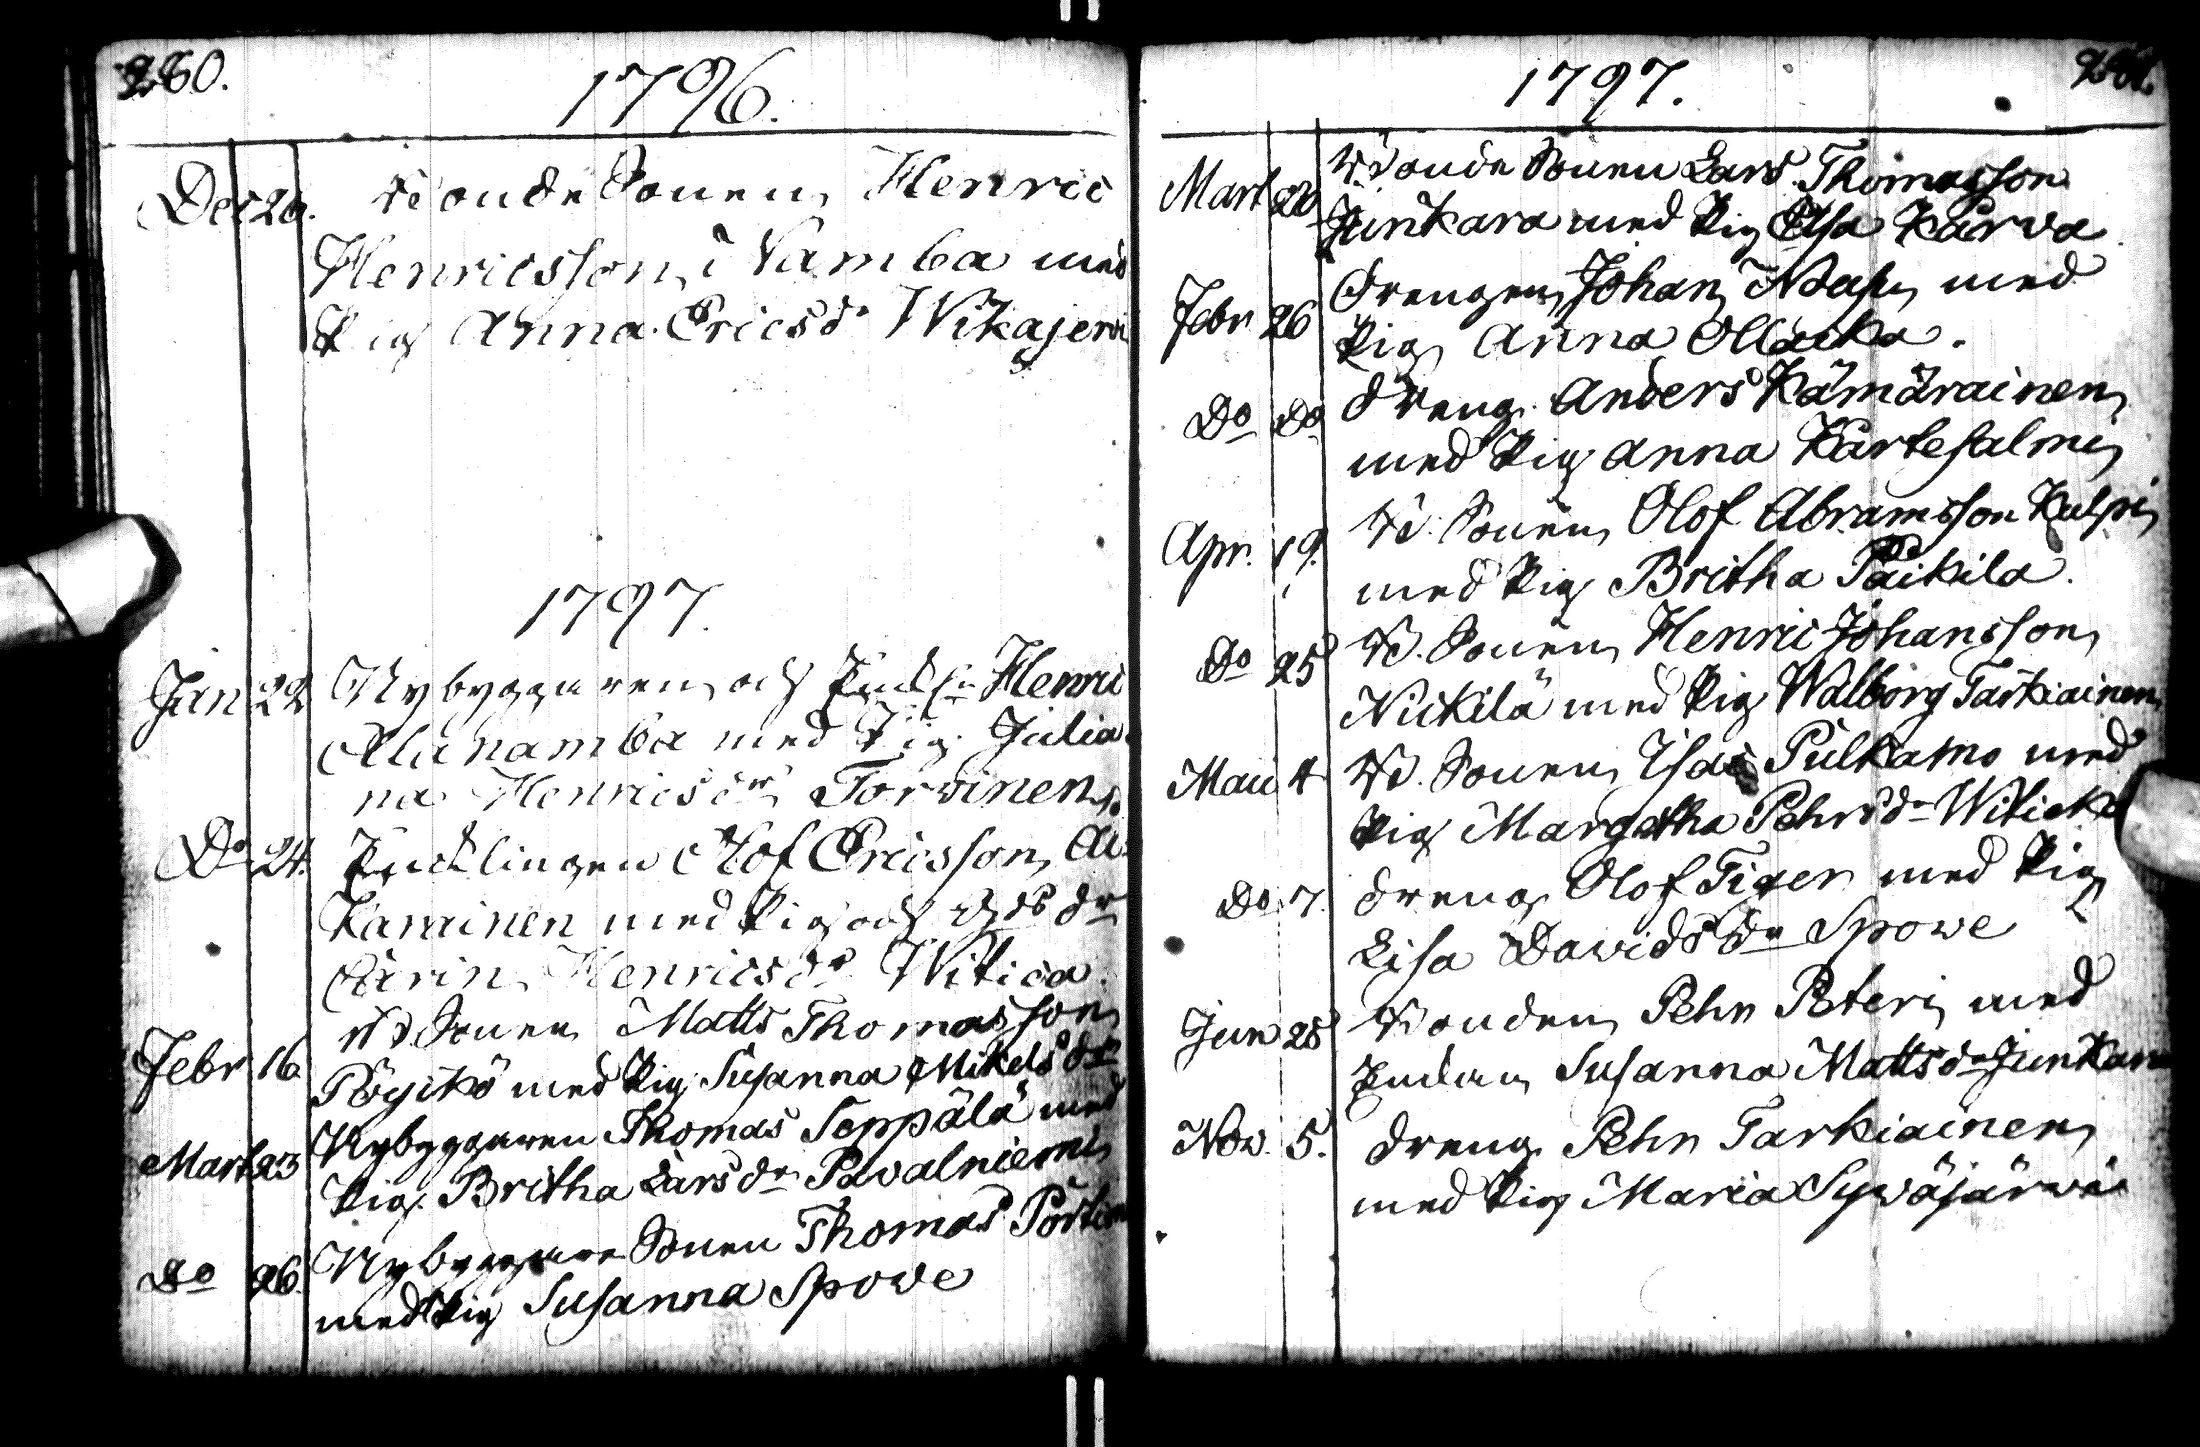 280.
1796.
Dec 26. Bonde Sonen Henric
Henricsson Namba med
Pig Anna Ericsdr Wikajerwi
1797.
Jan 22 Nybyggaren och Enkl. Henric
Alanamba med Pig. Julia
na Henricsdr Torvinen
Do 24. Enklingen Olof Ericsson Al
Karainen med Pig och
Carin Henricsdr Witica.
Bd Sonen Matts Thomasson
Febr 16. Pöyikö med Pig Susanna Mikelsdr
Nybyggaren Thomas Seppälä med
Mart 23 Pig. Britha Larsdr Pavalniemi
Nybyggare Sonen Thomas
Do 26. med Pig Susanna Spowe
1797.
281.
Mart 20 Bonde Sonen Lars Thomasson
Junkara med Pig Elsa Karva
Febr 26 Drengen Johan med
Pig Anna Ollacka.
Do Do Dreng. Anders Kämäräinen
med Pig Anna Kartesalmi
Apr. 19. Bd. Sonen Olof Abramsson Kulpi
med Pig Britha Paikila.
Do 25 Bd. Sonen Henric Johansson
Nickilä med Pig Walborg Tarkiainen
Maii 4 Bd. Sonen Isac Pulkamo med
Pig Margetha Pehrsdr Witick
Do 7. Dreng Olof Tiger med Pig
Lisa Davidsdr Spowe
Jun 28 Bonden Pehr Peteri med
Enkan Susanna Mattsdr Junkara
Nov. 5. Dreng Pehr Tarkiainen
med Pig Maria Sywäjärwi